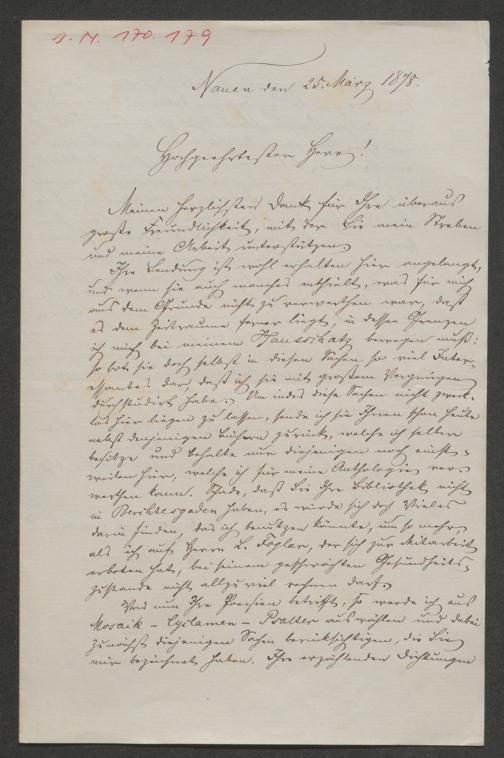 J. N. 170.179
Nauen den 25. März 1878.
Hochgeehrtester Herr!
Meinen herzlichsten Dank für Ihre überaus
große Freundlichkeit, mit der Sie mein Streben
und meine Arbeit unterstützen.
Ihre Sendung ist wohl erhalten hier angelangt,
und wenn sie auch manches enthielt, was für mich
aus dem Grunde nicht zu verwerthen war, daß
es dem Zeitraume ferner liegt, in dessen Grenzen
ich mich bei meinem Hausschatz bewegen muß:
so bot sie doch selbst in diesen Sachen so viel Inter-
essantes dar, daß ich sie mit großem Vergnügen
durchstudirt habe. Um indes diese Sachen nicht zweck-
los hier liegen zu lassen, sende ich sie Ihnen schon heute
nebst denjenigen Büchern zurück, welche ich selber
besitze und behalte nur diejenigen noch einst-
weilen hier, welche ich für meine Anthologie ver-
werthen kann. Schade, daß Sie Ihre Bibliothek nicht
in Berchtesgaden haben, es würde sich doch Vieles
darin finden, das ich benutzen könnte, um so mehr,
als ich auf Herrn L. Foglar, der sich zur Mitarbeit
erboten hat, bei seinem geschwächten Gesundheits-
zustande nicht allzuviel rechnen darf.
Was nun Ihre Poesien betrifft, so werde ich aus
Mosaik - Cyclamen - Psalter auswählen und dabei
zunächst diejenigen Sachen berücksichtigen, die Sie
mir bezeichnet haben. Ihre erzählenden Dichtungen